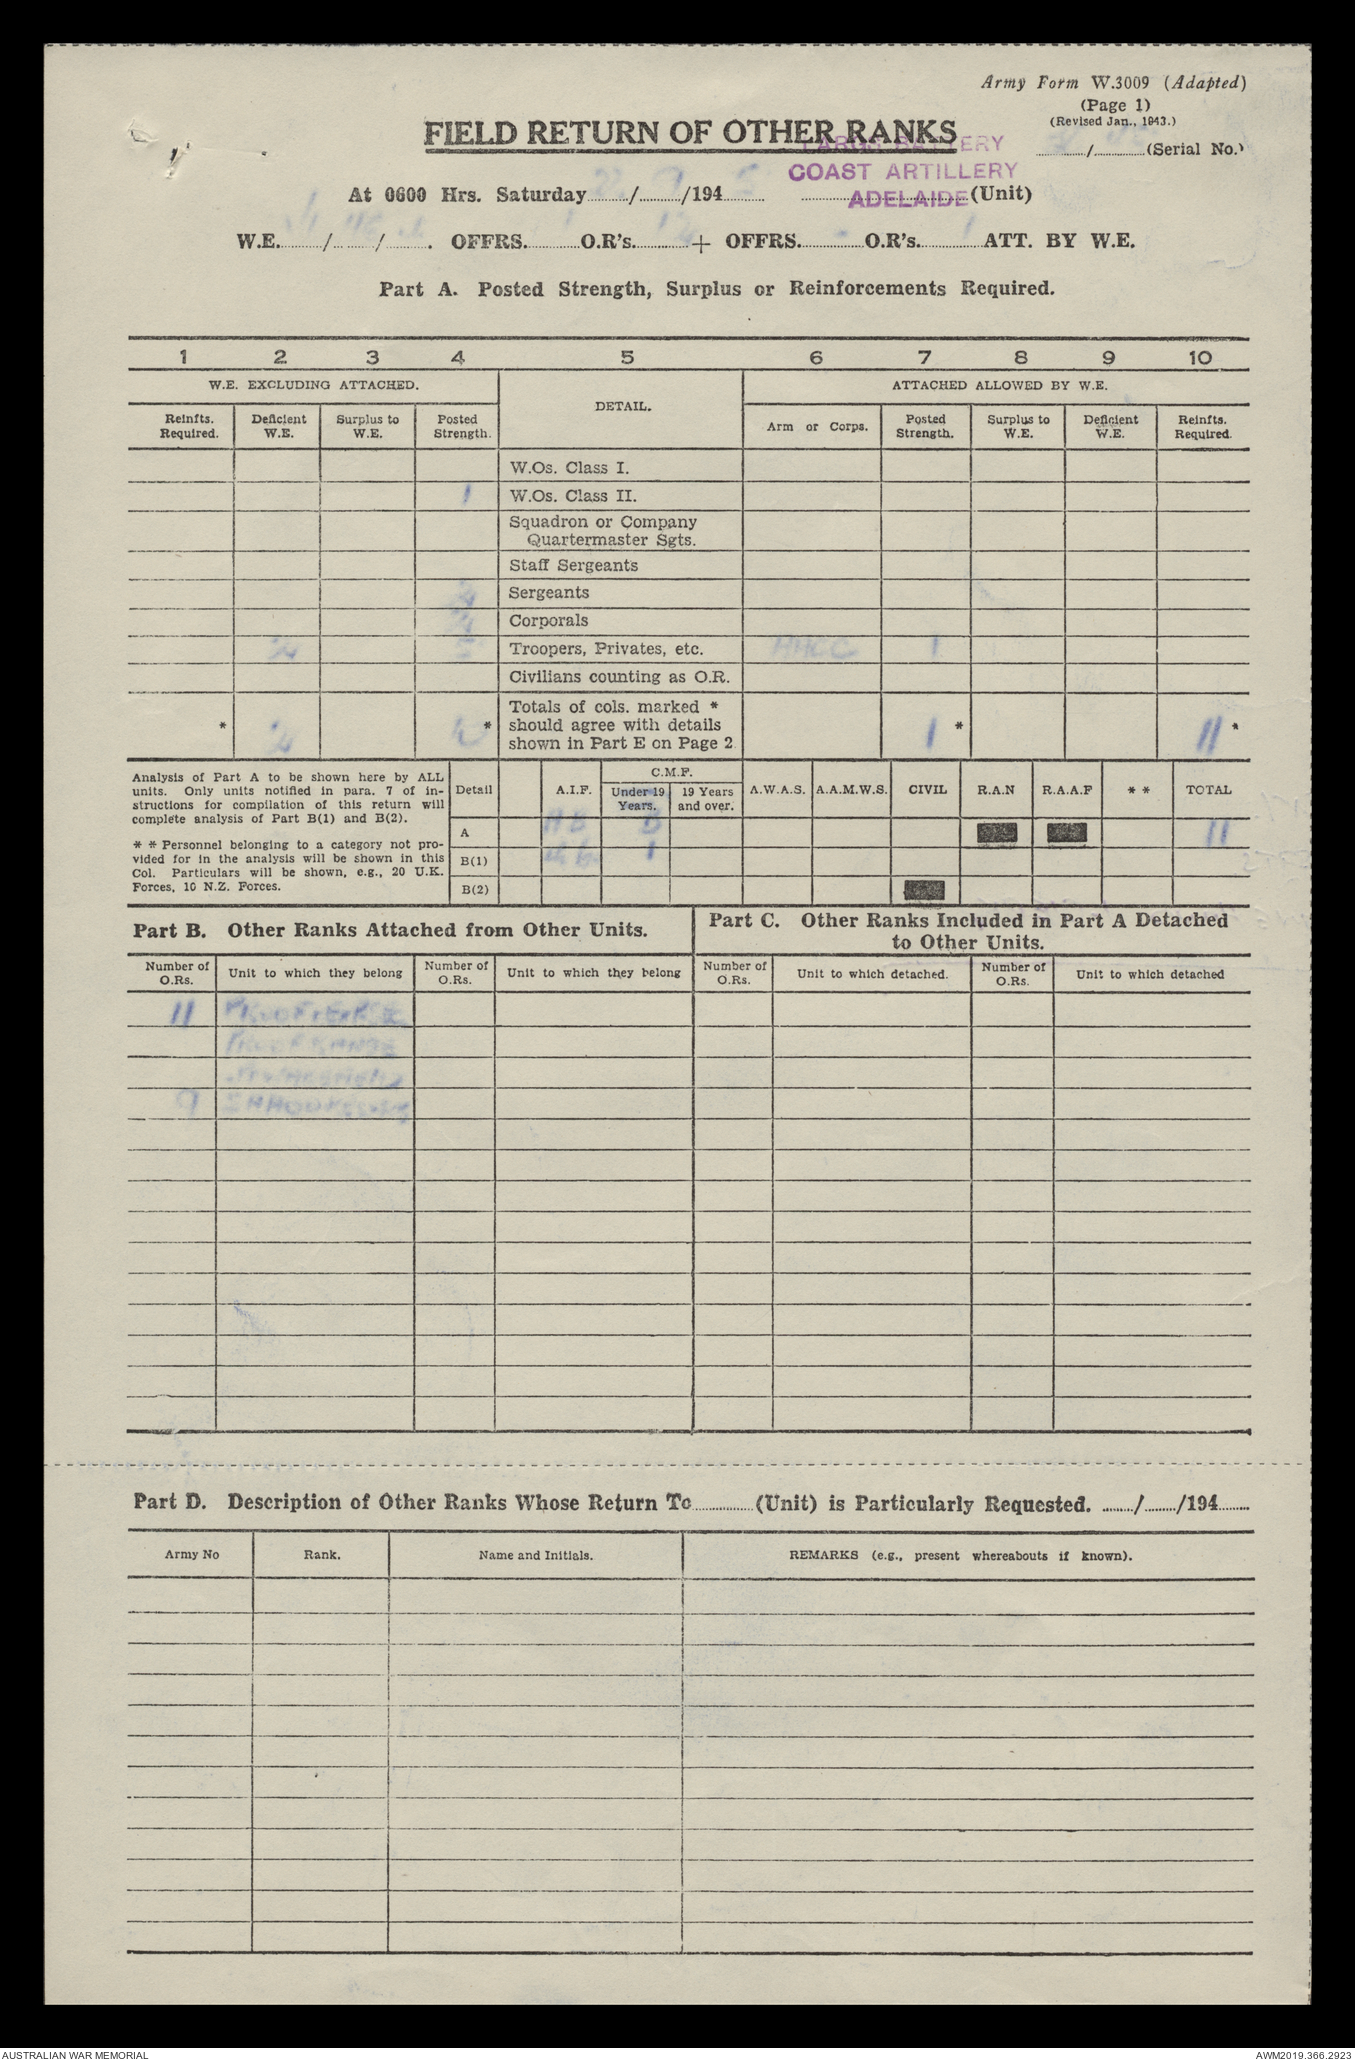 Army Form W.3009 (Adapted)
(Page 1)
(Revised Jan., 1943.)
FIELD RETURN OF OTHER RANKS
BATTERY
COAST ARTILLERY
ADELAIDE
......../........(Serial No.)
At 0600 Hrs. Saturday......../......../194........ ........(Unit)
W.E......../......../........ OFFRS.........O.R's.........+ OFFRS.........O.R's.........ATT. BY W.E.
Part A. Posted Strength, Surplus or Reinforcements Required.
1 2 3 4 5 6 7 8 9 10
W.E. EXCLUDING ATTACHED. DETAIL. ATTACHED ALLOWED BY W.E.
Reinfts. Required. Deficient W.E. Surplus to W.E. Posted Strength. Arm or Corps. Posted Strength. Surplus to W.E. Deficient W.E. Reinfts. Required.
W.Os. Class I.
1 W.Os. Class II.
Squadron or Company
Quartermaster Sgts.
Staff Sergeants
Sergeants
Corporals
2 Troopers, Privates, etc. 1
Civilians counting as O.R.
Totals of cols. marked *
* 2 * should agree with details 1 * 11 *
shown in Part E on Page 2
Analysis of Part A to be shown here by ALL
units. Only units notified in para. 7 of in-
structions for compilation of this return will
complete analysis of Part B(1) and B(2).
* * Personnel belonging to a category not pro-
vided for in the analysis will be shown in this
Col. Particulars will be shown, e.g., 20 U.K.
Forces, 10 N.Z. Forces.
Detail A.I.F. C.M.F. Under 19 Years. 19 Years and over. A.W.A.S. A.A.M.W.S. CIVIL R.A.N R.A.A.F * * TOTAL
A 11
B(1) 1
B(2)
Part B. Other Ranks Attached from Other Units.
Part C. Other Ranks Included in Part A Detached
to Other Units.
Number of O.Rs. Unit to which they belong Number of O.Rs. Unit to which they belong Number of O.Rs. Unit to which detached. Number of O.Rs. Unit to which detached
11
9
Part D. Description of Other Ranks Whose Return To........(Unit) is Particularly Requested. ......../......../194........
Army No Rank. Name and Initials. REMARKS (e.g., present whereabouts if known).
AUSTRALIAN WAR MEMORIAL
AWM2019.366.2923